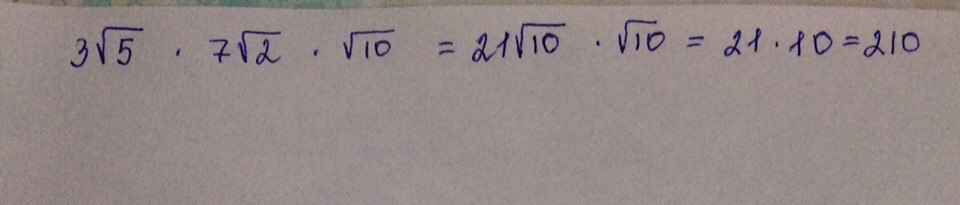 3√5 · 7√2 · √10 = 21√10 · √10 = 21 · 10 = 210